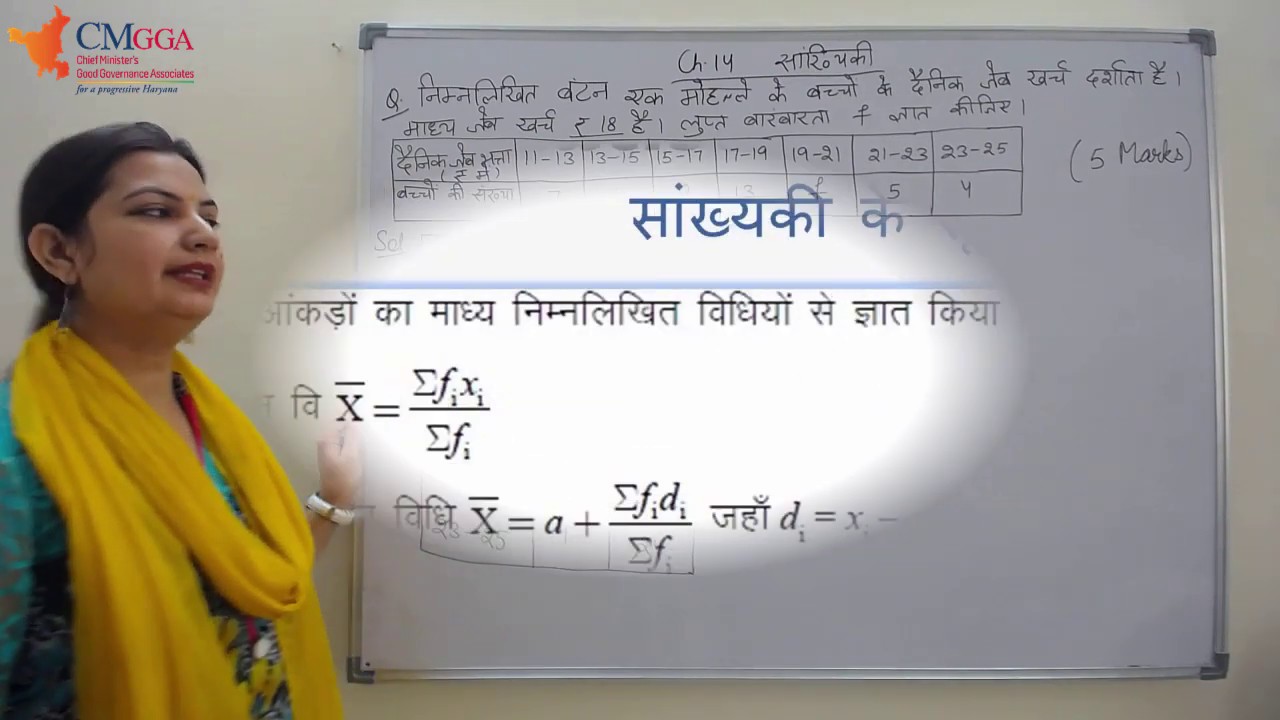 CMGGA
Chief Minister's
Good Governance Associates
for a progressive Haryana
Ch-14 सांख्यिकी
Q. निम्नलिखित बंटन एक मोहल्ले के बच्चों के दैनिक जेब खर्च दर्शाता है।
माध्य जेब खर्च ₹ 18 है। लुप्त बारंबारता f ज्ञात कीजिए।
(5 Marks)
दैनिक जेब भत्ता (₹ में) 11-13 13-15 15-17 17-19 19-21 21-23 23-25
बच्चों की संख्या 13 f 5 4
Sol
सांख्यकी क
आंकड़ों का माध्य निम्नलिखित विधियों से ज्ञात किया
वि X̅ = Σfᵢxᵢ / Σfᵢ
विधि X̅ = a + Σfᵢdᵢ / Σfᵢ जहाँ dᵢ = xᵢ −